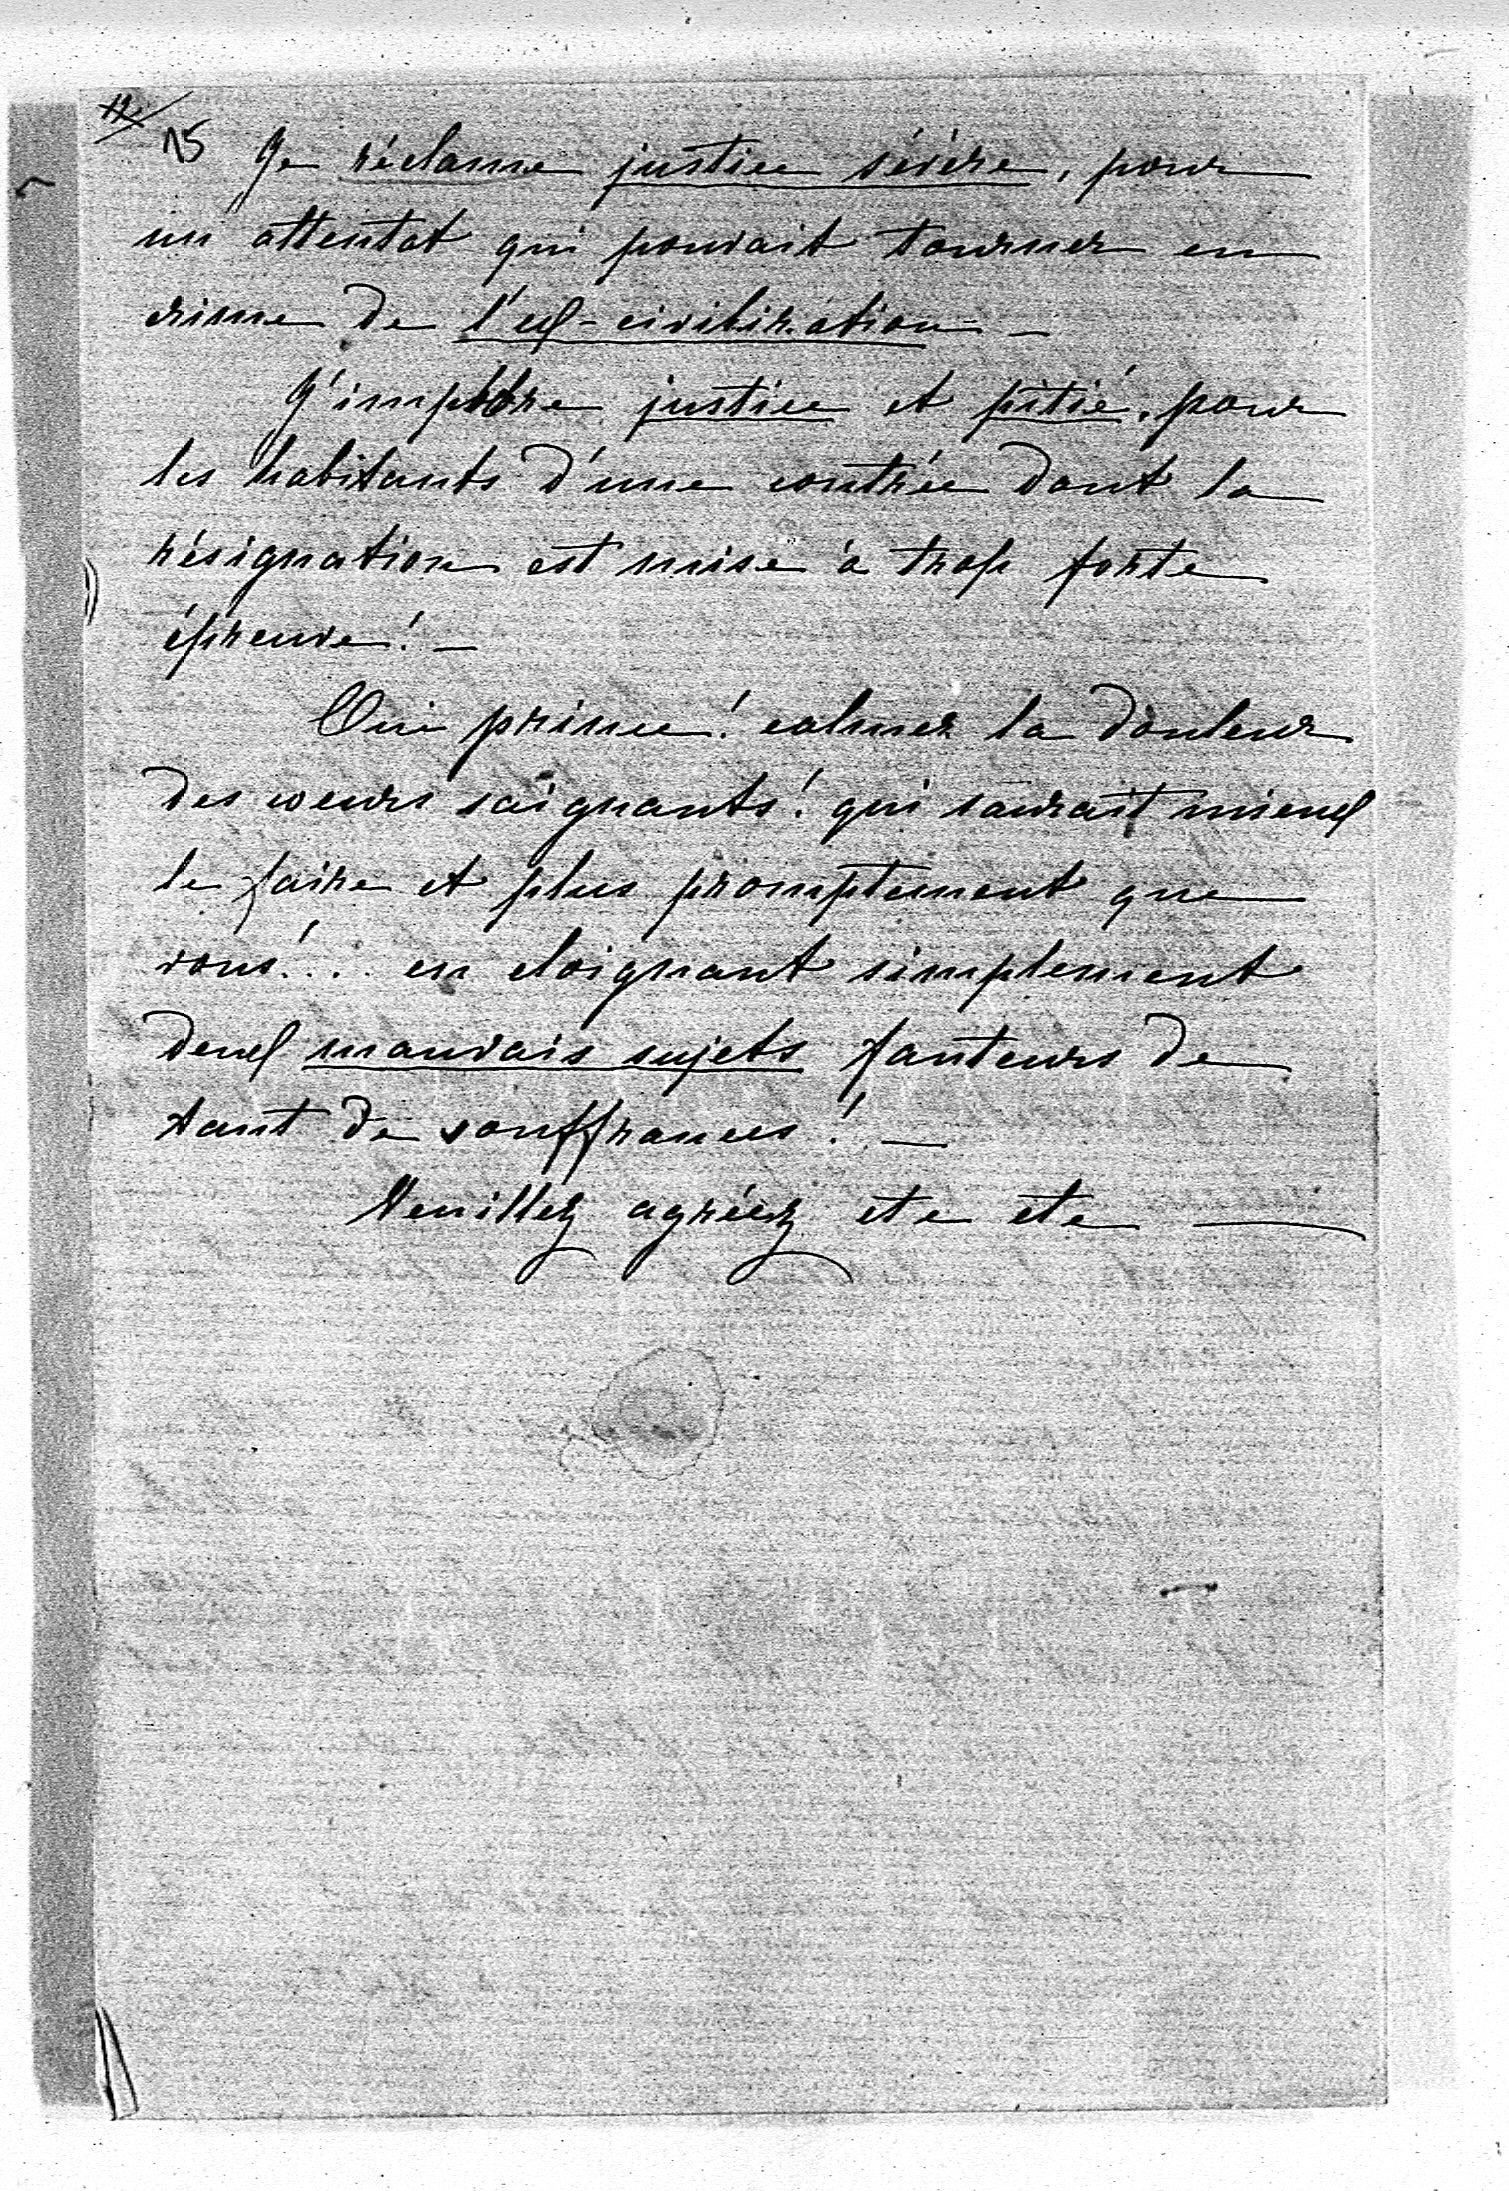 15 Je réclame justice sévère, pour
un attentat qui pouvait tourner en
crime de l'ex-civilisation —
J'implore justice et pitié, pour
les habitants d'une contrée dont la
résignation est mise à trop forte
épreuve! —
Oui prince! calmez la douleur
des cœurs saignants! qui saurait mieux
le faire et plus promptement que
vous!... en éloignant simplement
deux mauvais sujets fauteurs de
tant de souffrances! —
Veuillez agréez etc etc —